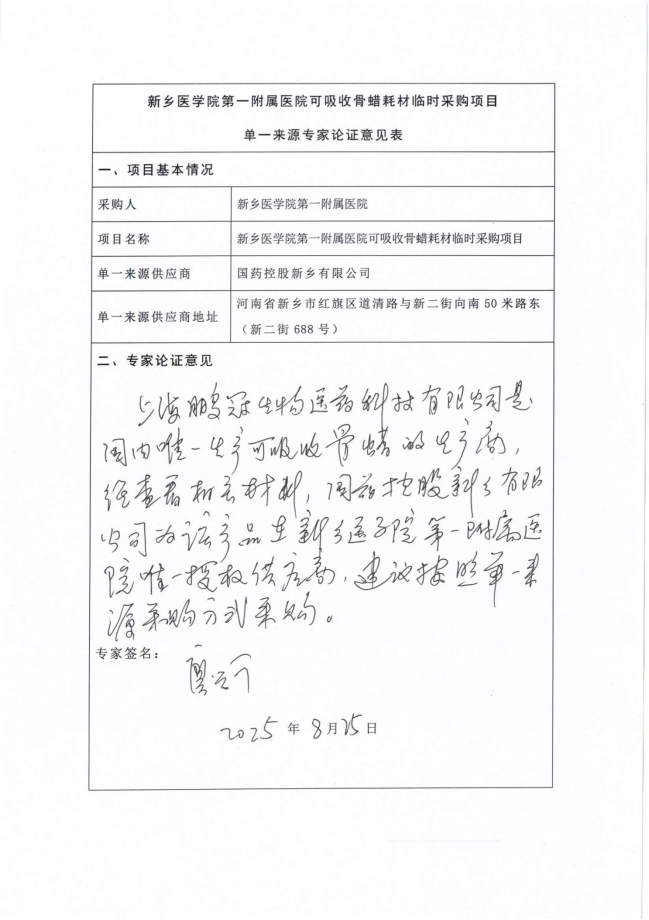 新乡医学院第一附属医院可吸收骨蜡耗材临时采购项目
单一来源专家论证意见表
一、项目基本情况
采购人 新乡医学院第一附属医院
项目名称 新乡医学院第一附属医院可吸收骨蜡耗材临时采购项目
单一来源供应商 国药控股新乡有限公司
单一来源供应商地址 河南省新乡市红旗区道清路与新二街向南 50 米路东
（新二街 688 号）
二、专家论证意见
上海鹏冠生物医药科技有限公司是
国内唯一生产可吸收骨蜡的生产商，
经查看相关材料，国药控股新乡有限
公司为该产品在新乡医学院第一附属医
院唯一授权供应商，建议按照单一来
源采购方式采购。
专家签名：
2025 年 8 月 25 日